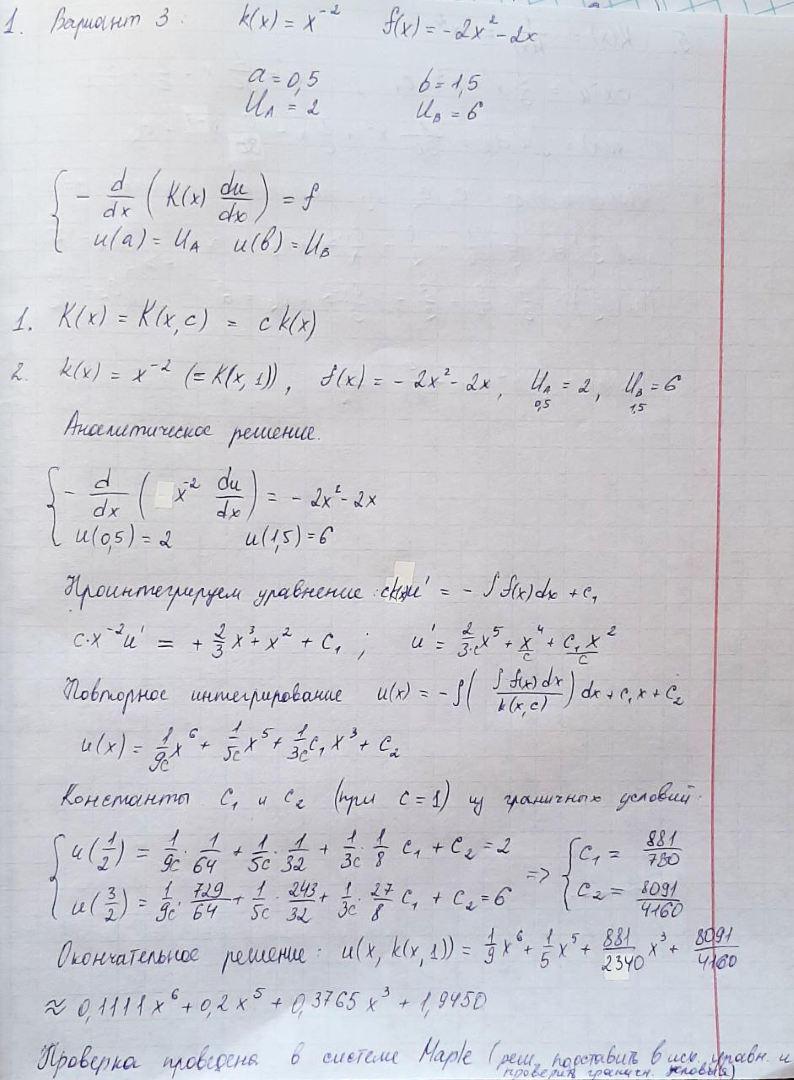 1. Вариант 3: k(x) = x⁻² f(x) = -2x² - 2x
a = 0,5 b = 1,5
U_A = 2 U_B = 6
{ - d/dx ( K(x) du/dx ) = f
u(a) = U_A u(b) = U_B
1. K(x) = K(x, c) = c k(x)
2. k(x) = x⁻² (= K(x, 1)), f(x) = - 2x² - 2x, U_A = 2, U_B = 6
0,5 1,5
Аналитическое решение.
{ - d/dx ( x⁻² du/dx ) = - 2x² - 2x
u(0,5) = 2 u(1,5) = 6
Проинтегрируем уравнение: u' = - ∫ f(x) dx + c₁
c·x⁻² u' = + 2/3 x³ + x² + C₁ ; u' = 2/(3·c) x⁵ + x⁴/c + (C₁ x²)/c
Повторное интегрирование u(x) = - ∫ ( ∫ f(x) dx / k(x, c) ) dx + c₁ x + C₂
u(x) = 1/(9c) x⁶ + 1/(5c) x⁵ + 1/(3c) c₁ x³ + C₂
Константы C₁ и C₂ (при c = 1) из граничных условий:
{ u(1/2) = 1/(9c) · 1/64 + 1/(5c) · 1/32 + 1/(3c) · 1/8 C₁ + C₂ = 2 => { C₁ = 881/780
u(3/2) = 1/(9c) · 729/64 + 1/(5c) · 243/32 + 1/(3c) · 27/8 C₁ + C₂ = 6 C₂ = 8091/4160
Окончательное решение: u(x, k(x, 1)) = 1/9 x⁶ + 1/5 x⁵ + 881/2340 x³ + 8091/4160
≈ 0,1111 x⁶ + 0,2 x⁵ + 0,3765 x³ + 1,9450
Проверка проведена в системе Maple (реш. подставить в исх. уравн. и
проверить граничн. условия)